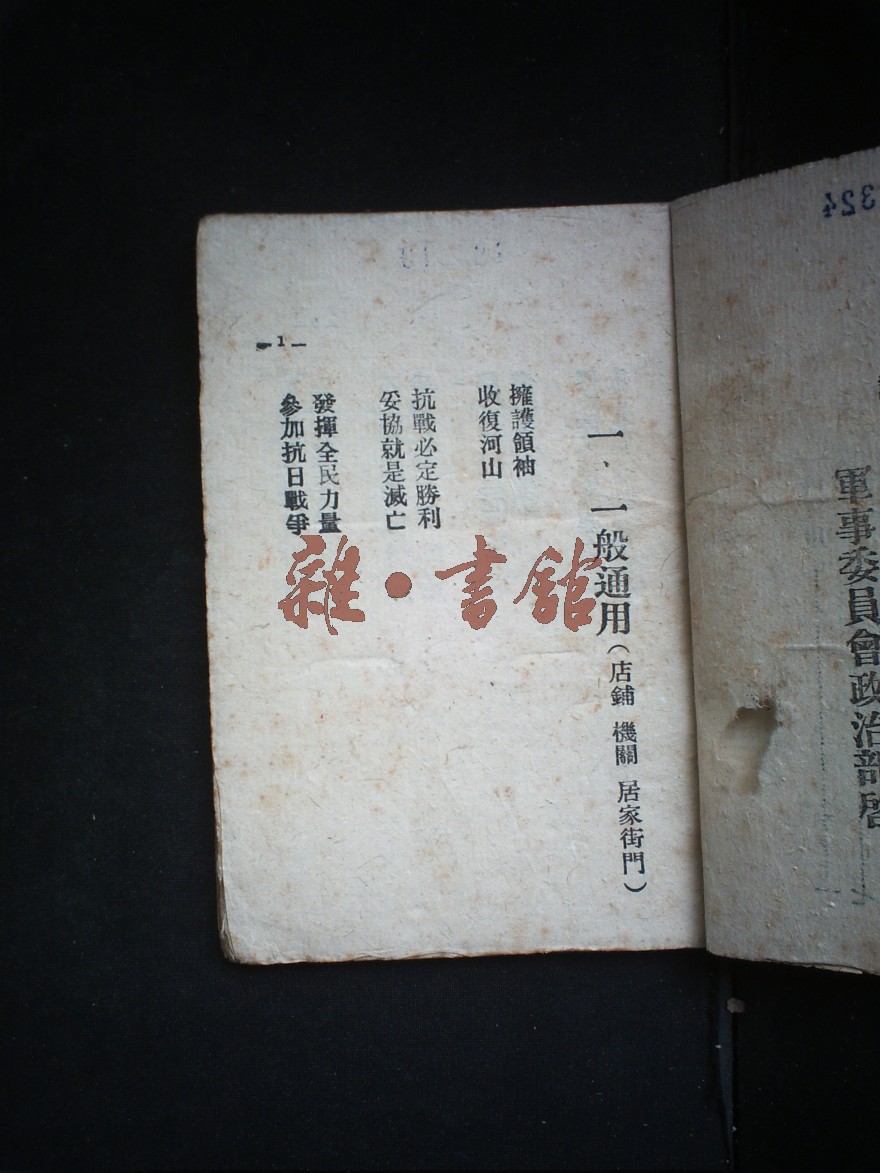 軍事委員會政治部啓
324
一、一般通用（店鋪 機關 居家街門）
擁護領袖
收復河山
抗戰必定勝利
妥協就是滅亡
發揮全民力量
參加抗日戰爭
—1—
雜·書館